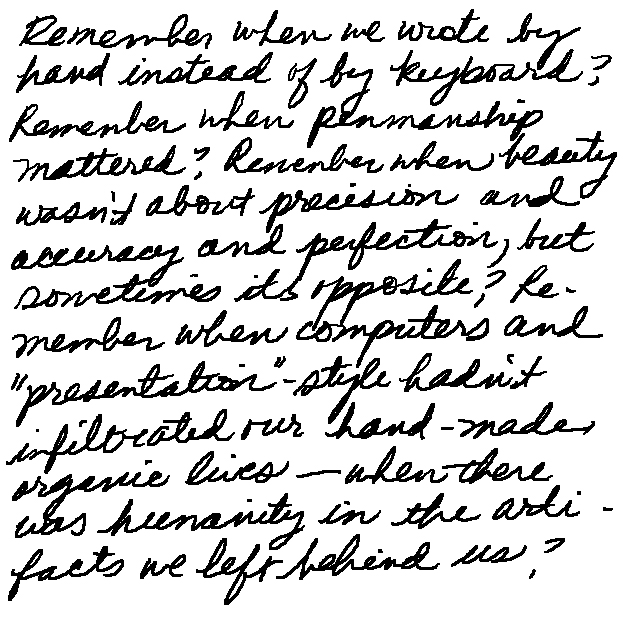 Remember when we wrote by
hand instead of by keyboard?
Remember when penmanship
mattered? Remember when beauty
wasn't about precision and
accuracy and perfection, but
sometimes its opposite? Re-
member when computers and
"presentation"-style hadn't
infiltrated our hand-made,
organic lives—when there
was humanity in the arti-
facts we left behind us?